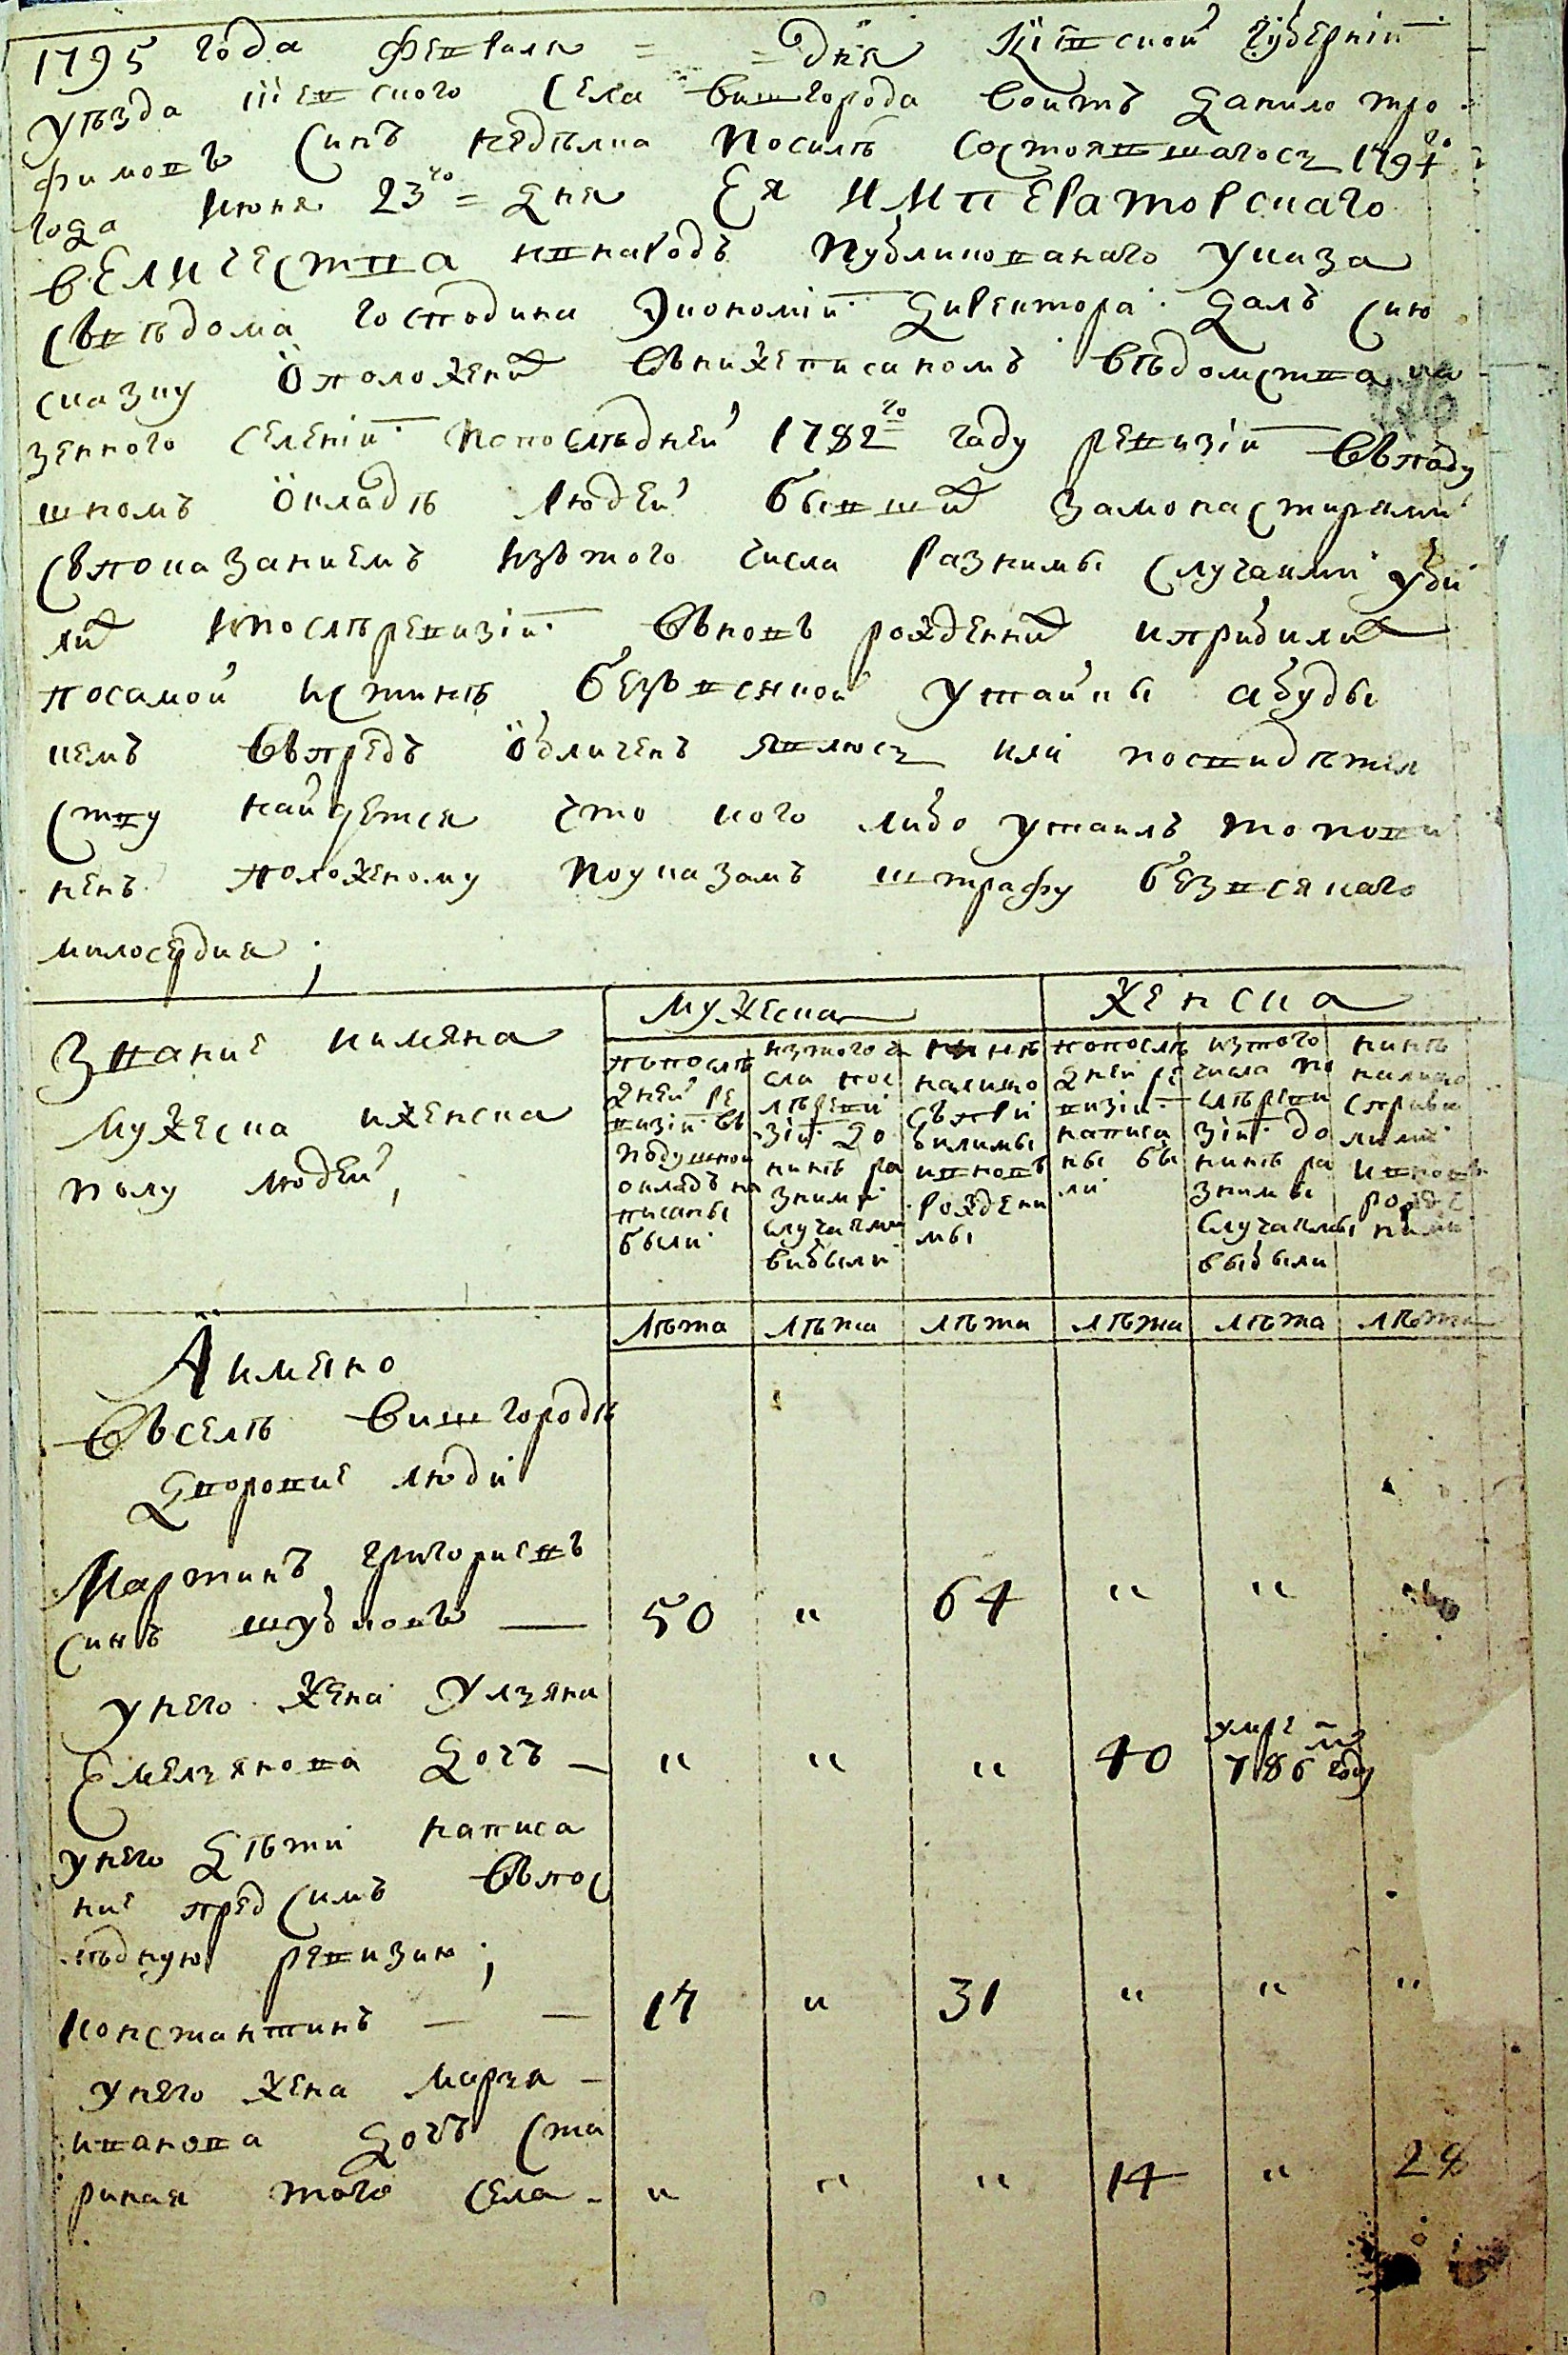 1795 года февраля = = дня Кіевской губерніи
уѣзда Кіевского села Вишгорода воитъ данило тро
фимовъ синъ недѣлка посилѣ состоявшагось 1794го
года июня 23го = дня Ея ИМПЕРАТОРСКАГО
ВЕЛИЧЕСТВА внародъ публикованаго указа
съвѣдома господина Экономіи директора далъ сию
сказку о положених вънижеписаномъ вѣдомства ка
зенного селеніи попослѣдней 1782го году ревизіи въпаду
шномъ окладѣ людей бывших замонастирями
съпоказаниемъ изътого числа разнимы случаями уби
лих ипослѣревизіи въновь рожденних иприбилих
посамой истинѣ безъвсякой утайкы абуды
чемъ въпредъ обличенъ явлюсь или посвидѣтел
ству найдется что кого либо утаилъ то пови
ненъ положеному поуказамъ штрафу безвсякаго
милосердия ;
Мужеска Женска
Звание иимяна
мужеска иженска
полу людей,
попослѣ
дней ре
визіи въ
подушной
окладъ на
писаны
были
изтого чи
сла пос
лѣреви
зіи до
нинѣ ра
зними
случаями
вибыли
нинѣ
налицо
съпри
билимы
ивновъ
рождени
мы
попослѣ
дней ре
визіи
написа
ны бы
ли
изтого
числа по
слѣреви
зіи до
нинѣ ра
знимы
случаимы
выбыли
нинѣ
налицо
сприби
лими
ивновъ
рожде
ними
лѣта лѣта лѣта лѣта лѣта лѣта
А имяно
Въселѣ Вишгородѣ
дворовие люди
Мартинъ григориевъ
синъ шубковъ — 50 " 64 " "
унего жена Улзяна
Емелзянова дочъ — " " " 40 умре в 786 году
унего дѣти написа
ние пред симъ въпос
лѣдную ревизию ;
Константинъ — — 17 " 31 " " "
унего жена марья —
иванова дочъ ста
риная того села - " " " 14 " 28